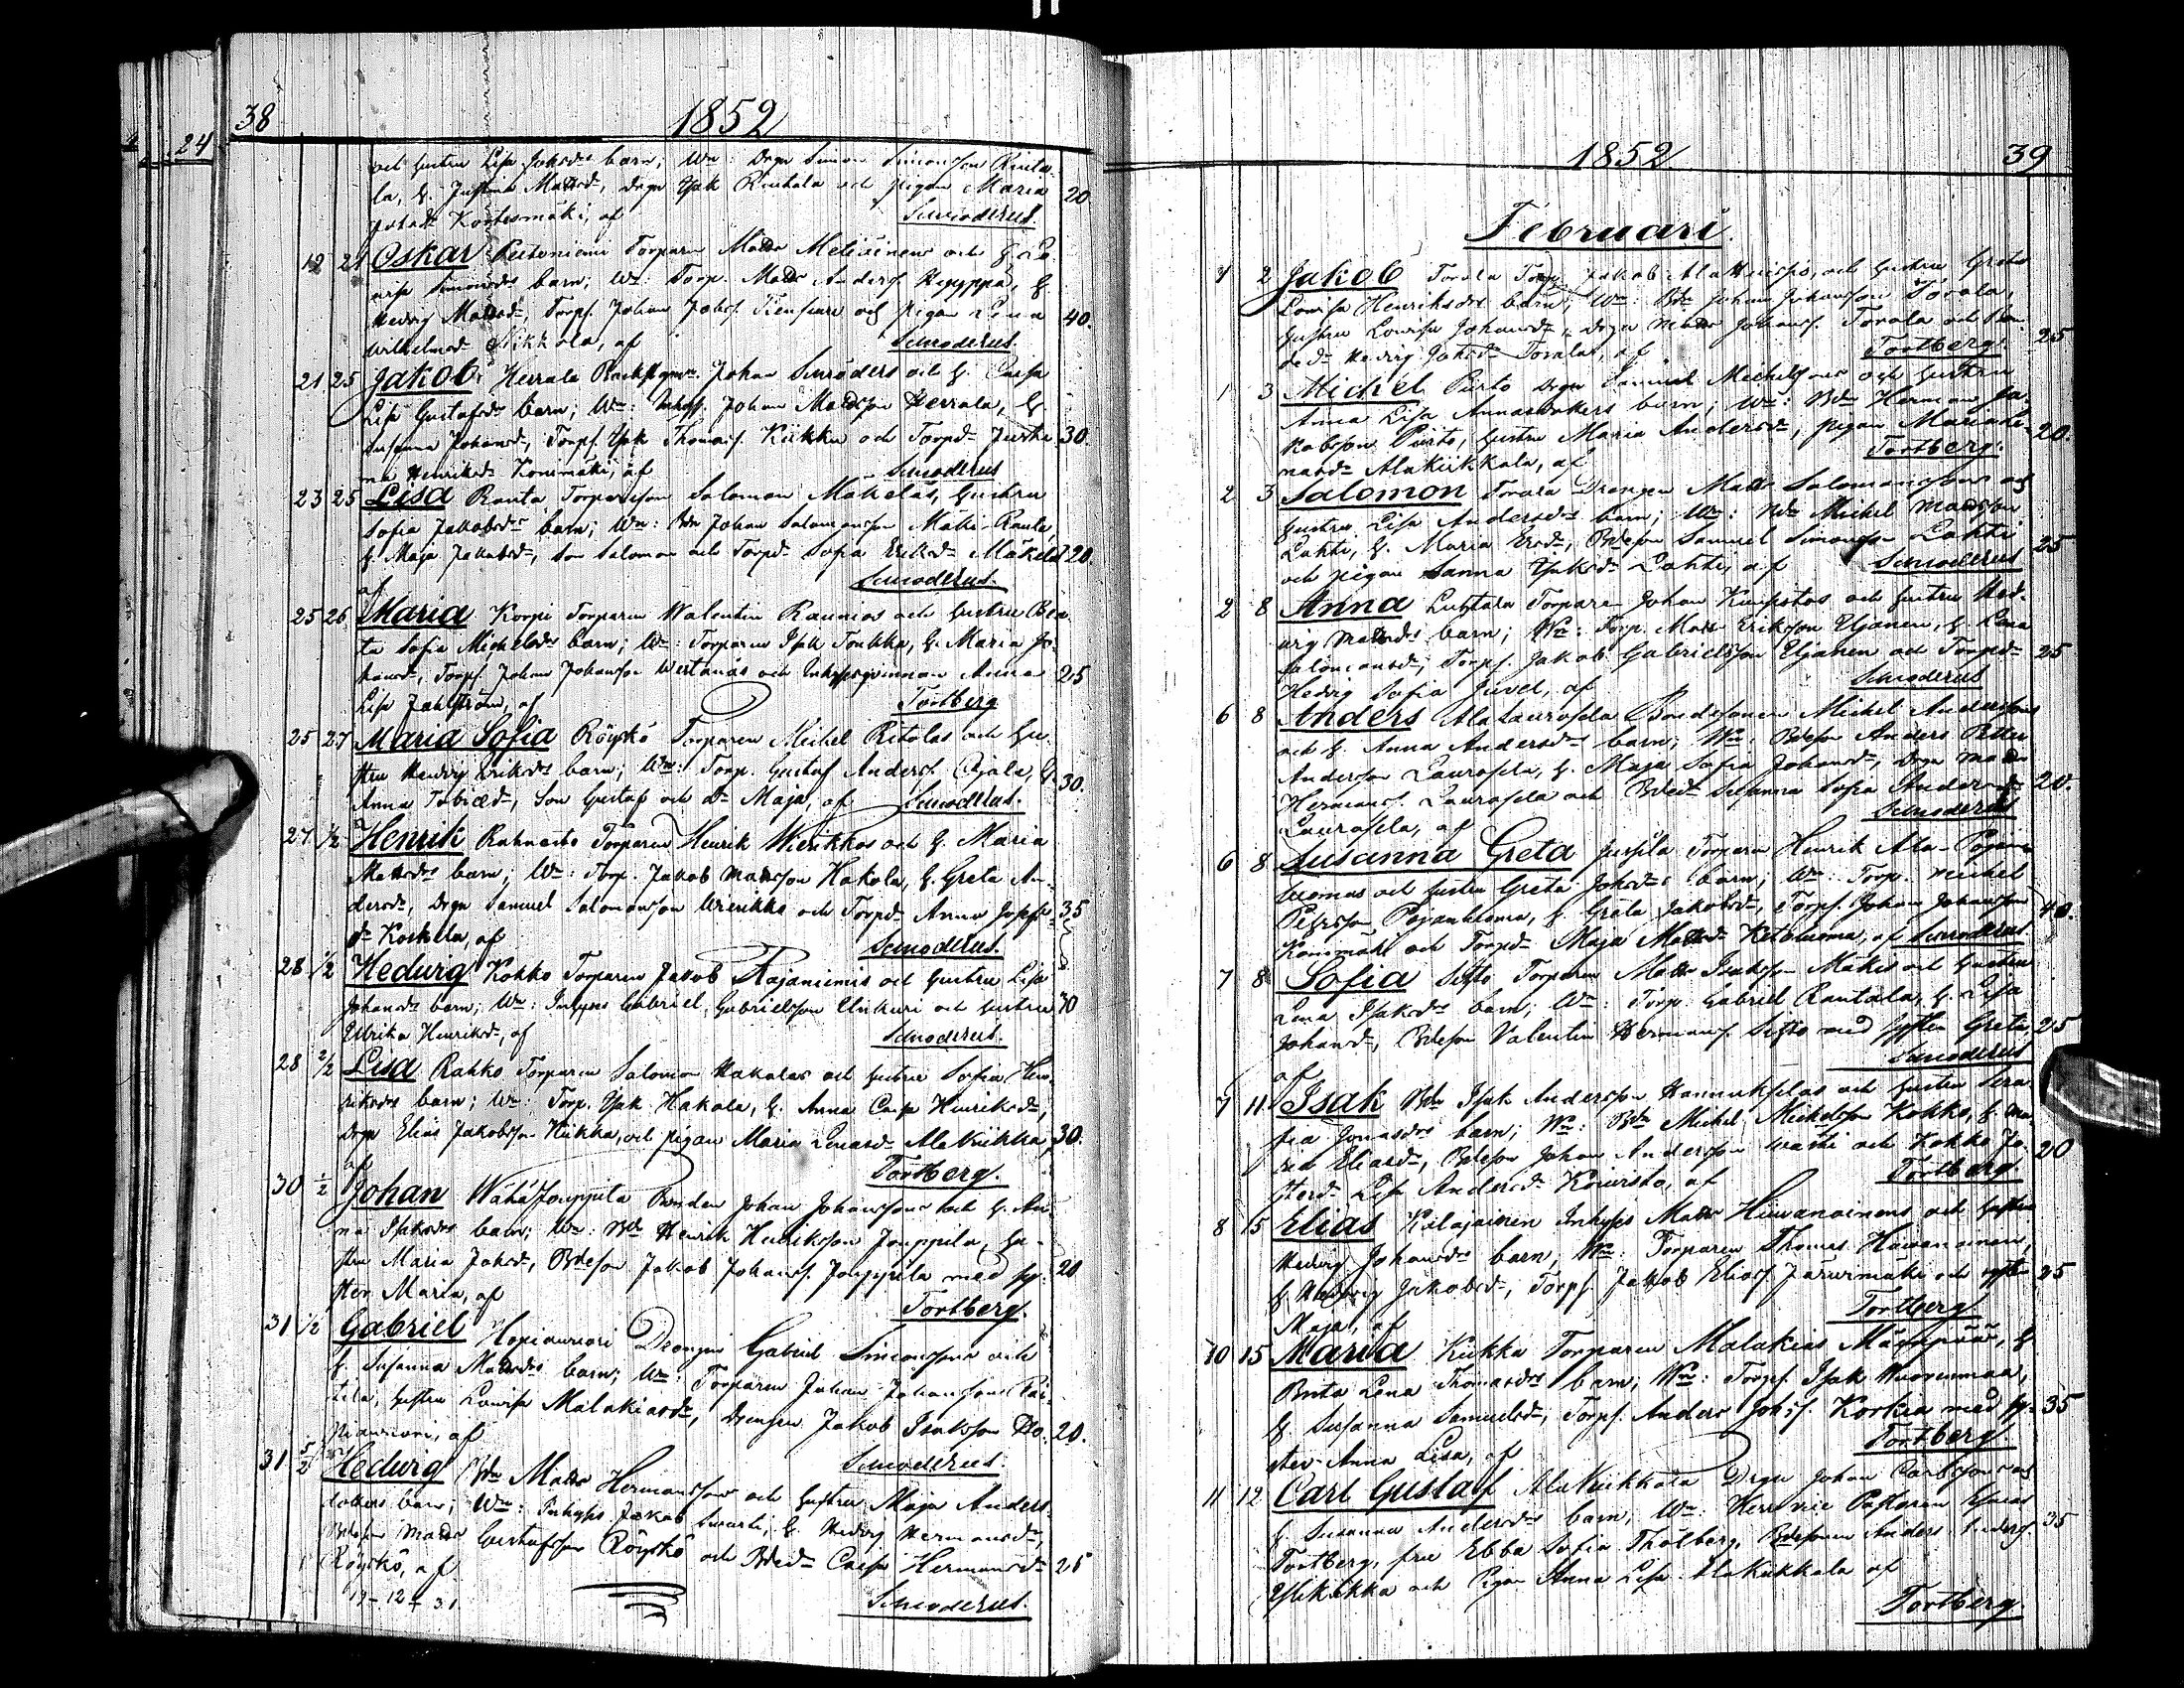 24
38 1852
och hustru Lisa Johsdrs barn; Wn: Drgn Simon Simonsson Rinta-
la, h. Justina Mattsdr, drgn Isak Rintala och pigan Maria 20
Kortesmäki, af Simoderus.
19 21 Oskar Torparen Matts Metiäinens och h. Lo-
visa Simonsdrs barn; Wn: Torp. Matts Anderss. h.
Hedvig Mattsd, Torps. Johan Johss. och pigan Lena 40.
Wilhelmsd Nikkola, af Simoderus.
21 25 Jakob, Herrala Johan Schröders och h. Caisa
Lisa Gustafsdrs barn; Wn: Inhyss. Johan Mattsson Herrala, h.
Susanna Johansd, Torps. Isak Thomass. Kiikka och Torpd Justi- 30.
na Henriksd Konimäki, af Simoderus
23 25 Lisa Ranta Torparesson Salomon Mäkeläs, hustru
Sofia Jakobsdrs barn; Wn: Bdn Johan Salomonsson Mäki-Ranta,
h. Maja Jakobsd, son Salomon och Torpd Sofia Eriksd Mäkelä 20.
af Simoderus.
25 26 Maria Korpi Torparen Walentin Raunios och hustru Bea-
ta Sofia Michelsdrs barn; Wn: Torparen Isak Toukka, h. Maria Jo-
hansd, Torps. Johan Johansson Wertanäs och Inhysesqvinnan Anna 25
Lisa Jahlström, af Tortberg
25 27 Maria Sofia Röyskö Torparen Michel Ritolas och hu-
stru Hedvig Eriksdrs barn; Wn: Torp. Gustaf Anderss. Ojala, h. 30.
Anna Tobiaed, son Gustaf och d Maja, af Simoderus.
27 1/2 Henrik Rahnasto Torparen Henrik Wierikkos och h. Maria
Mattsdrs barn; Wn: Torp. Jakob Mattsson Hakola, h. Greta An-
dersd, Drgn Samuel Salomonsson Wierikko och Torpd Anna Josefs- 35
d Koskela, af Simoderus.
28 1/2 Hedwig Kokko Torparen Jakob Rajaniemis och hustru Lisa
Johansds barn; Wn: Inhyses Gabriel Gabrielsson Unkuri och hustru 30
Ulrika Henriksd, af Simoderus.
28 2/2 Lisa Rahko Torparen Salomon Hakalas och hustru Sofia Hen-
riksdrs barn; Wn: Torp. Isak Hakala, h. Anna Caisa Henriksd,
Drgn Elias Jakobsson Kiikka, och pigan Maria Lenasd Alakiikka, 30.
af Tortberg.
30 1/2 Johan Wähä Jouppila Bonden Johan Johanssons och h. An-
na Isaksdrs barn; Wn: Bdn Henrik Henriksson Jouppila, hu-
stru Maria Johsd, Bdeson Jakob Johanss. Jouppila med sy- 20
ster Maria, af Tortberg.
31 1/2 Gabriel Hopiavuori Drengen Gabriel Simonssons och
h. Susanna Mattsdrs barn; Wn: Torparen Johan Johansson Tai-
, hustru Lovisa Malakiasd, Drengen Jakob Isaksson Ho- 20.
piavuori, af Simoderus.
31 5/2 Hedwig Bdn Matts Hermanssons och hustru Maja Anders-
dotters barn; Wn: Inhyses Jakob Swarti, h. Hedvig Hermansd,
Bdeson Matts Gustafsson Röyskö och Bded Caisa Hermansd 25
Röyskö, af Simoderus.
19 - 12 = 31.
1852 39
Februari.
1 2 Jakob Torala Torp. Jakob och hustru Greta
Lovisa Henriksdrs barn; Wn: Bdn Johan Johansson Torala,
hustru Lovisa Johansd, Drgn Matts Johanss. Torala och Bon-
ded Hedvig Johsd Torala, af Tortberg. 25
1 3 Michel Piirto Drgn Samuel Michelssons och hustru
Anna Lisa Annasdotters barn; Wn: Bdn Herman Ja-
kobsson Piirto, hustru Maria Andersd, pigan Maria He- 20.
Alakiikkala, af Tortberg.
2 3 Salomon Torala Drengen Matts Salomonssons och
hustru Lisa Andersds barn; Wn: Bdn Michel Mattsson
Lahti, h. Maria Ersd, Bdeson Samuel Simonsson Lahti 25
och pigan Sanna Isaksd Lahti, af Simoderus
2 8 Anna Luhtala Torparen Johan Knupstas och hustru Hed-
vig Mattsdrs barn; Wn: Torp. Matts Eriksson Ujanen, h. Lena
Salomonsd, Torps. Jakob Gabrielsson Ujanen och Torpd 25
Hedvig Sofia Juvel, af Simoderus
6 8 Anders Alataurosela Bondesonen Michel Anderssons
och h. Anna Andersdrs barn; Wn: Bdeson Anders Petter
Andersson Laurosela, h. Maja Sofia Johansd, Drgn Matts
Hermanss. Laurosela och Bdedr Susanna Sofia Andersd 20.
Laurosela, af Simoderus
6 8 Susanna Greta Jussila Torparen Henrik Ala-Pojan-
luomas och hustru Greta Johsdrs barn; Wn: Torp. Michel
Petersson Pojanluoma, h. Greta Jakobsd, Torps. Johan Johansson 40.
Konimäki och Torpd Maja Mattsd Ketoluoma, af Simoderus
7 8 Sofia Sifto Torparen Matts Isaksson Mäkis och hustru
Lena Isaksdrs barn; Wn: Torp. Gabriel Rantala, h. Lisa
Johansd, Bdeson Valentin Hermanss. Sifto med syster Greta 25
af Simoderus
7 11 Isak Bdn Isak Andersson Hannukselas och hustru Sera-
fia Jonasdrs barn; Wn: Bdn Michel Michelsson Kokko, h. Ma-
ria Eliasd, Bdeson Johan Andersson och Kokko Jo- 20
Lisa Andersd Koivisto, af Tortberg.
8 15 Elias Kilajainen Inhyses Matts Hiwanainens och hustru
Hedvig Johansdrs barn; Wn: Torparen Thomas Hiwanainen,
h. Hedwig Jakobsd, Torps. Jakob Eliass. Jaurimäki och syster 25
Maja, af Tortberg
10 15 Maria Kiikka Torparen Malakias Mäenpää, h
Brita Lena Thomasdrs barn; Wn: Torps. Isak Wuorenmaa,
h. Susanna Samuelsd, Torps. Anders Johss. Korkia med sy- 35
ster Anna Lisa, af Tortberg
11 12 Carl Gustaf Alakiikkala Drgn Johan Carlssons och
h. Susanna Andersdrs barn; Wn: Herr vice Pastoren
Tortberg, fru Ebba Sofia Tholberg, Bdesonen Anders Anderss. 35
Ylikiikka och Pigan Anna Lisa Alakiikkala af
Tortberg